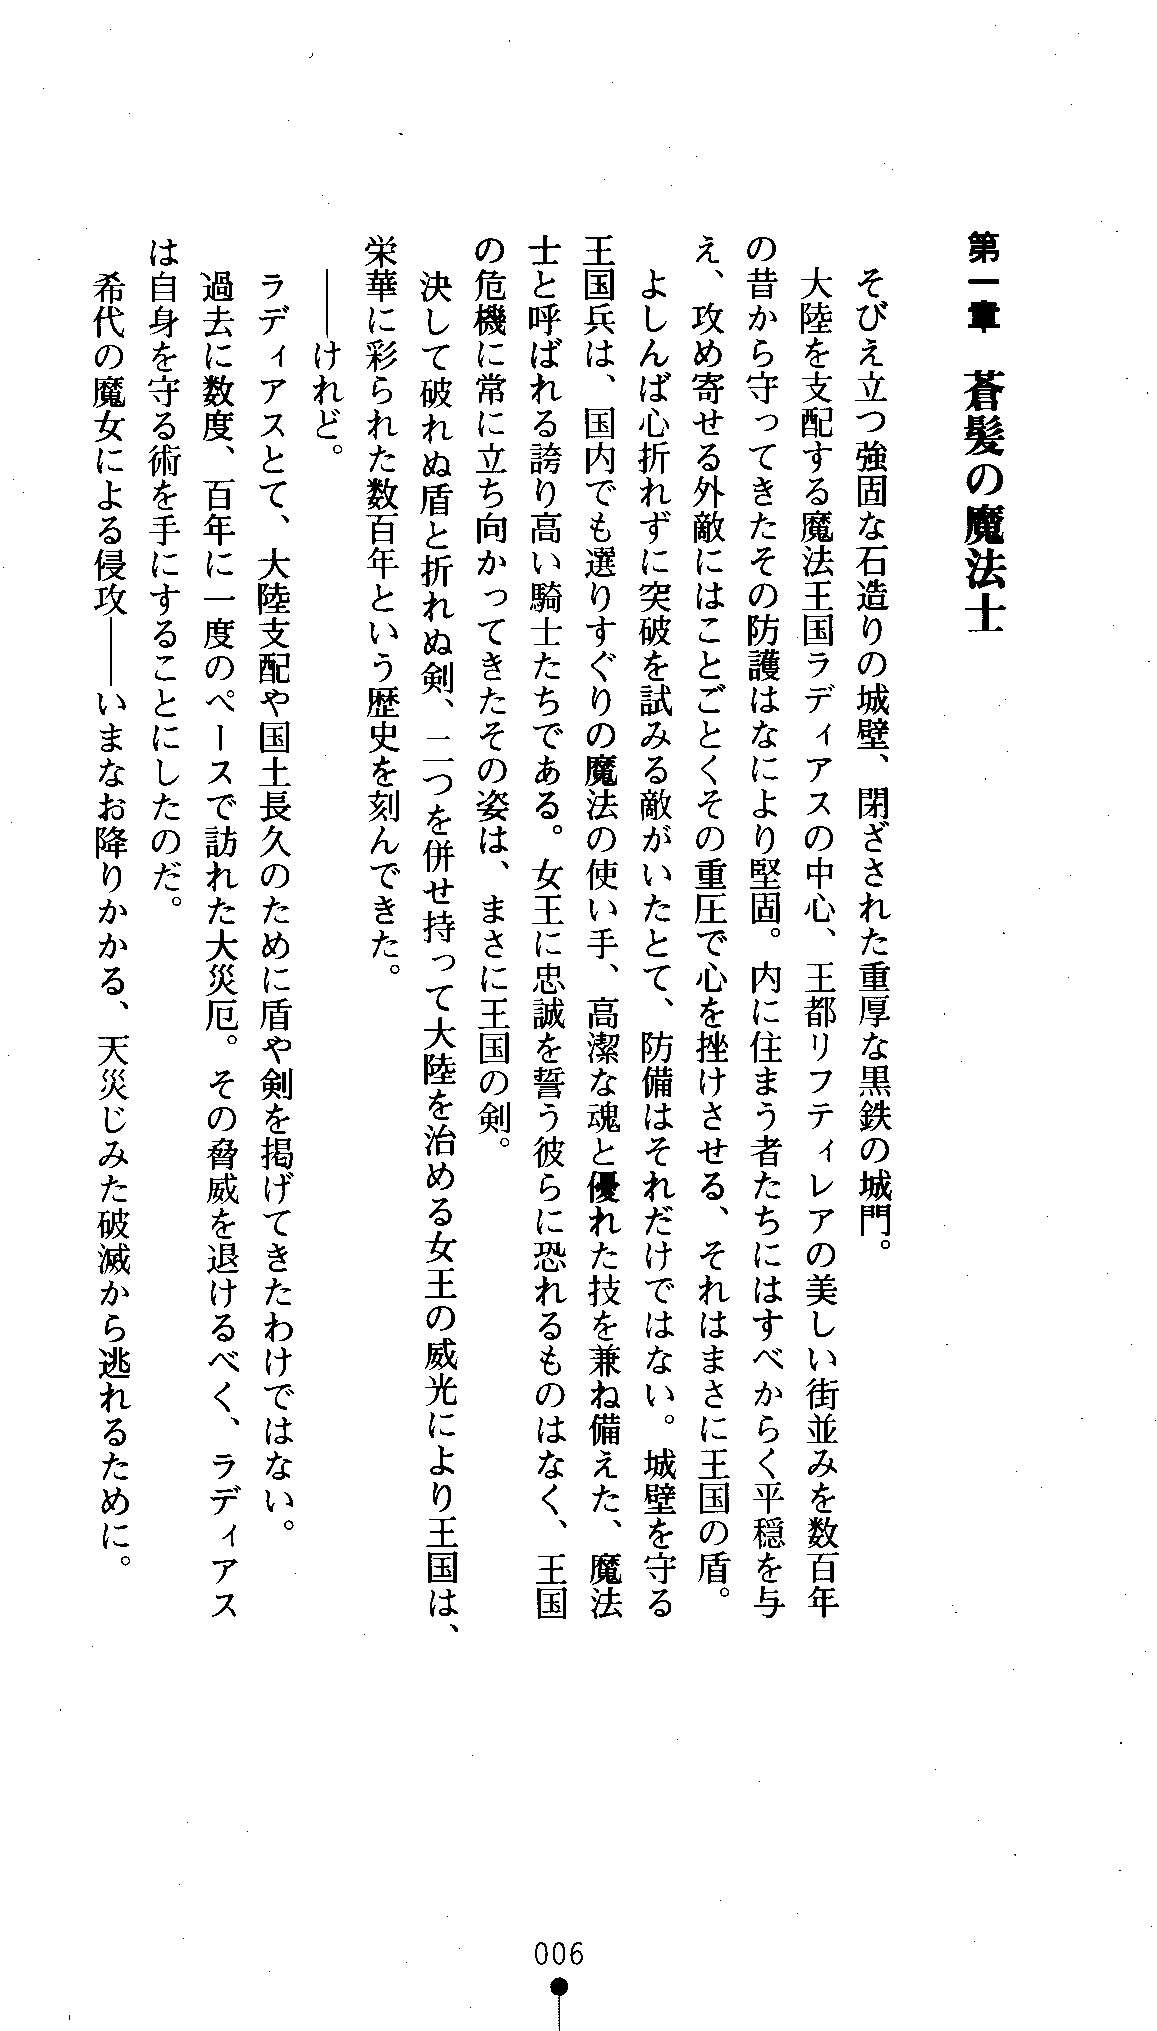 第一章　蒼髪の魔法士
　そびえ立つ強固な石造りの城壁、閉ざされた重厚な黒鉄の城門。
　大陸を支配する魔法王国ラディアスの中心、王都リフティレアの美しい街並みを数百年
の昔から守ってきたその防護はなにより堅固。内に住まう者たちにはすべからく平穏を与
え、攻め寄せる外敵にはことごとくその重圧で心を挫けさせる、それはまさに王国の盾。
　よしんば心折れずに突破を試みる敵がいたとて、防備はそれだけではない。城壁を守る
王国兵は、国内でも選りすぐりの魔法の使い手、高潔な魂と優れた技を兼ね備えた、魔法
士と呼ばれる誇り高い騎士たちである。女王に忠誠を誓う彼らに恐れるものはなく、王国
の危機に常に立ち向かってきたその姿は、まさに王国の剣。
　決して破れぬ盾と折れぬ剣、二つを併せ持って大陸を治める女王の威光により王国は、
栄華に彩られた数百年という歴史を刻んできた。
　――けれど。
　ラディアスとて、大陸支配や国土長久のために盾や剣を掲げてきたわけではない。
　過去に数度、百年に一度のペースで訪れた大災厄。その脅威を退けるべく、ラディアス
は自身を守る術を手にすることにしたのだ。
　希代の魔女による侵攻――いまなお降りかかる、天災じみた破滅から逃れるために。
006